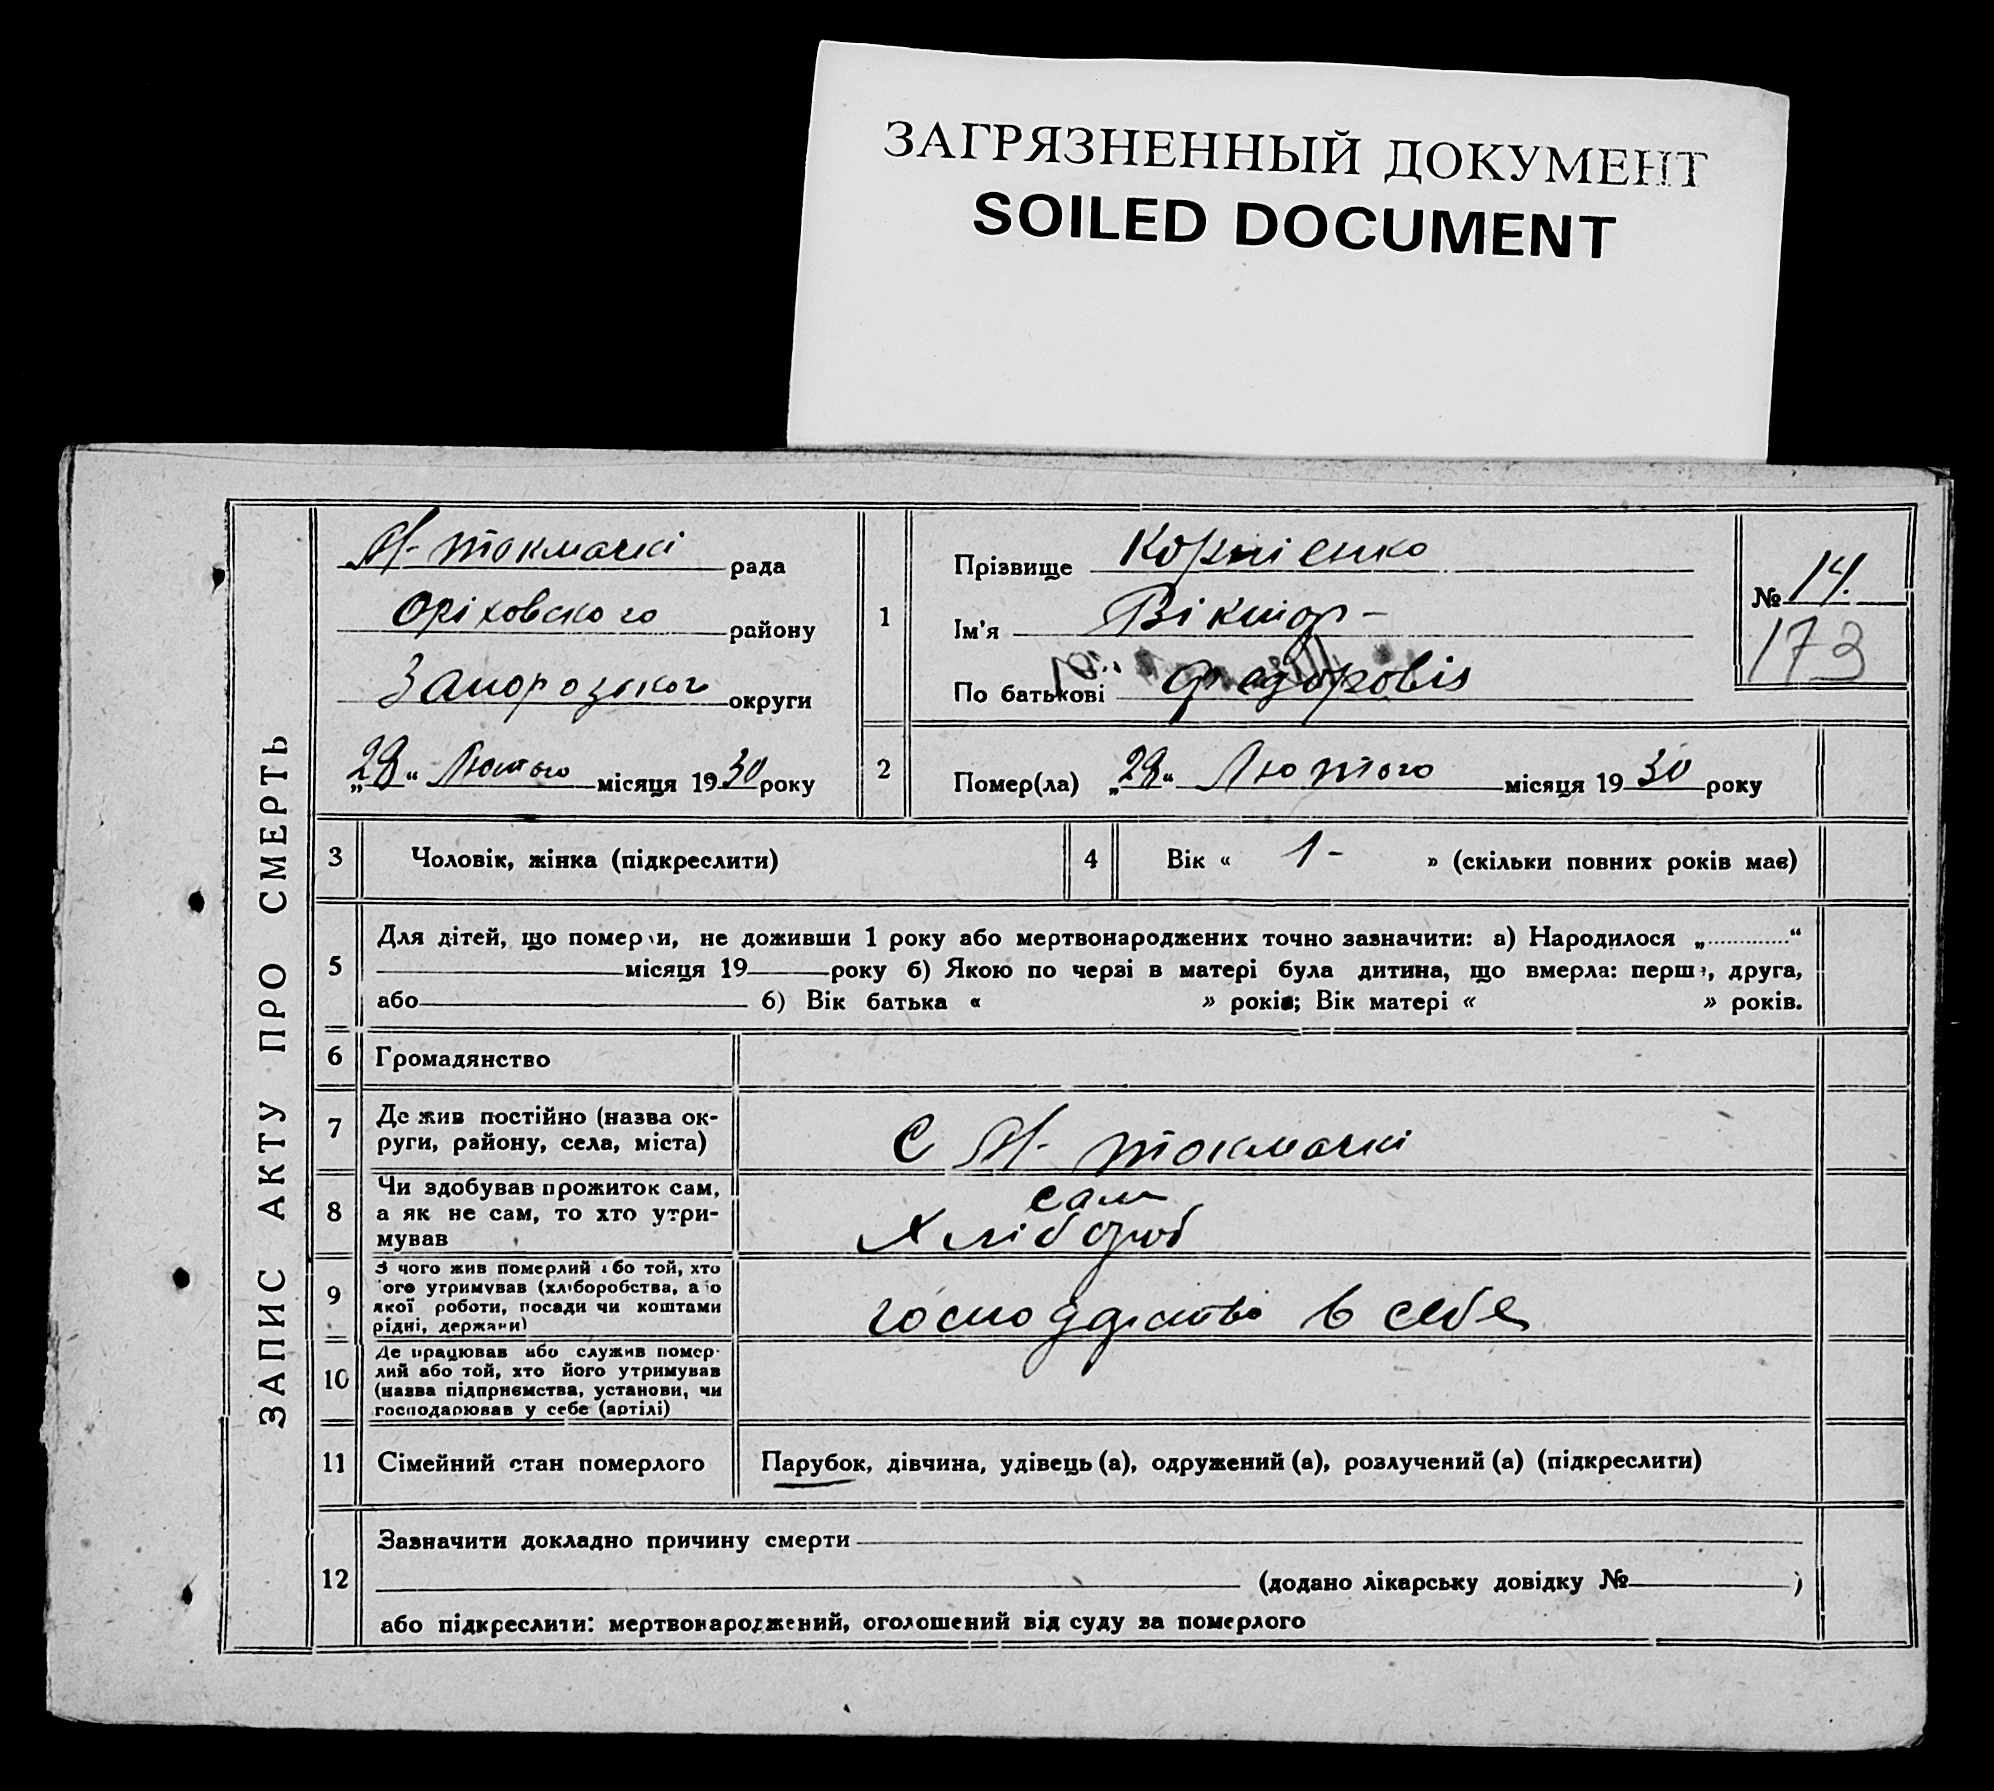 ЗАГРЯЗНЕННЫЙ ДОКУМЕНТ
SOILED DOCUMENT
ЗАПИС АКТУ ПРО СМЕРТЬ
М-токмачкі рада
Оріховского району
Запорозског округи
„28“ Лютого місяця 1930 року
1
Прізвище Корнієнко
Ім'я Віктор-
По батькові Федоровіч
№ 14.
173
2
Помер(ла) „28“ Лютого місяця 1930 року
3 Чоловік, жінка (підкреслити)
4 Вік « 1- » (скільки повних років має)
5
Для дітей, що померли, не доживши 1 року або мертвонароджених точно зазначити: а) Народилося „.............“
місяця 19 року б) Якою по черзі в матері була дитина, що вмерла: перша, друга,
або б) Вік батька « » років; Вік матері « » років.
6 Громадянство
7
Де жив постійно (назва ок-
руги, району, села, міста)
С М- токмачкі
8
Чи здобував прожиток сам,
а як не сам, то хто утри-
мував
сам
Хлібороб
9
З чого жив померлий або той, хто
його утримував (хліборобства, або
якої роботи, посади чи коштами
рідні, держави)
в себе
10
Де працював або служив помер-
лий або той, хто його утримував
(назва підприємства, установи, чи
господарював у себе (артілі)
11 Сімейний стан померлого
Парубок, дівчина, удівець (а), одружений (а), розлучений (а) (підкреслити)
12
Зазначити докладно причину смерти
(додано лікарську довідку № )
або підкреслити: мертвонароджений, оголошений від суду за померлого